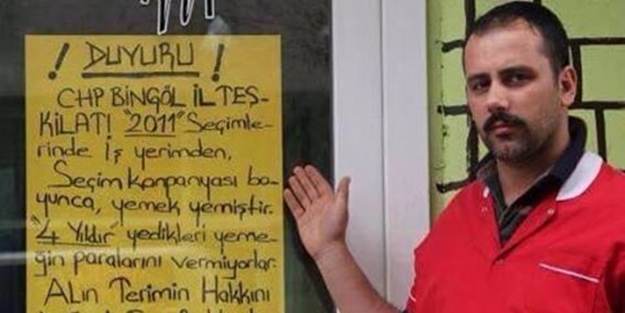 ! DUYURU !
CHP BİNGÖL İL TEŞ-
KİLATI "2011" Seçimle-
rinde İş yerimden,
Seçim Kanpanyası bo-
yunca, yemek yemiştir.
"4 Yıldır" yedikleri yeme-
ğin paralarını vermiyorlar.
ALın Terimin Hakkını